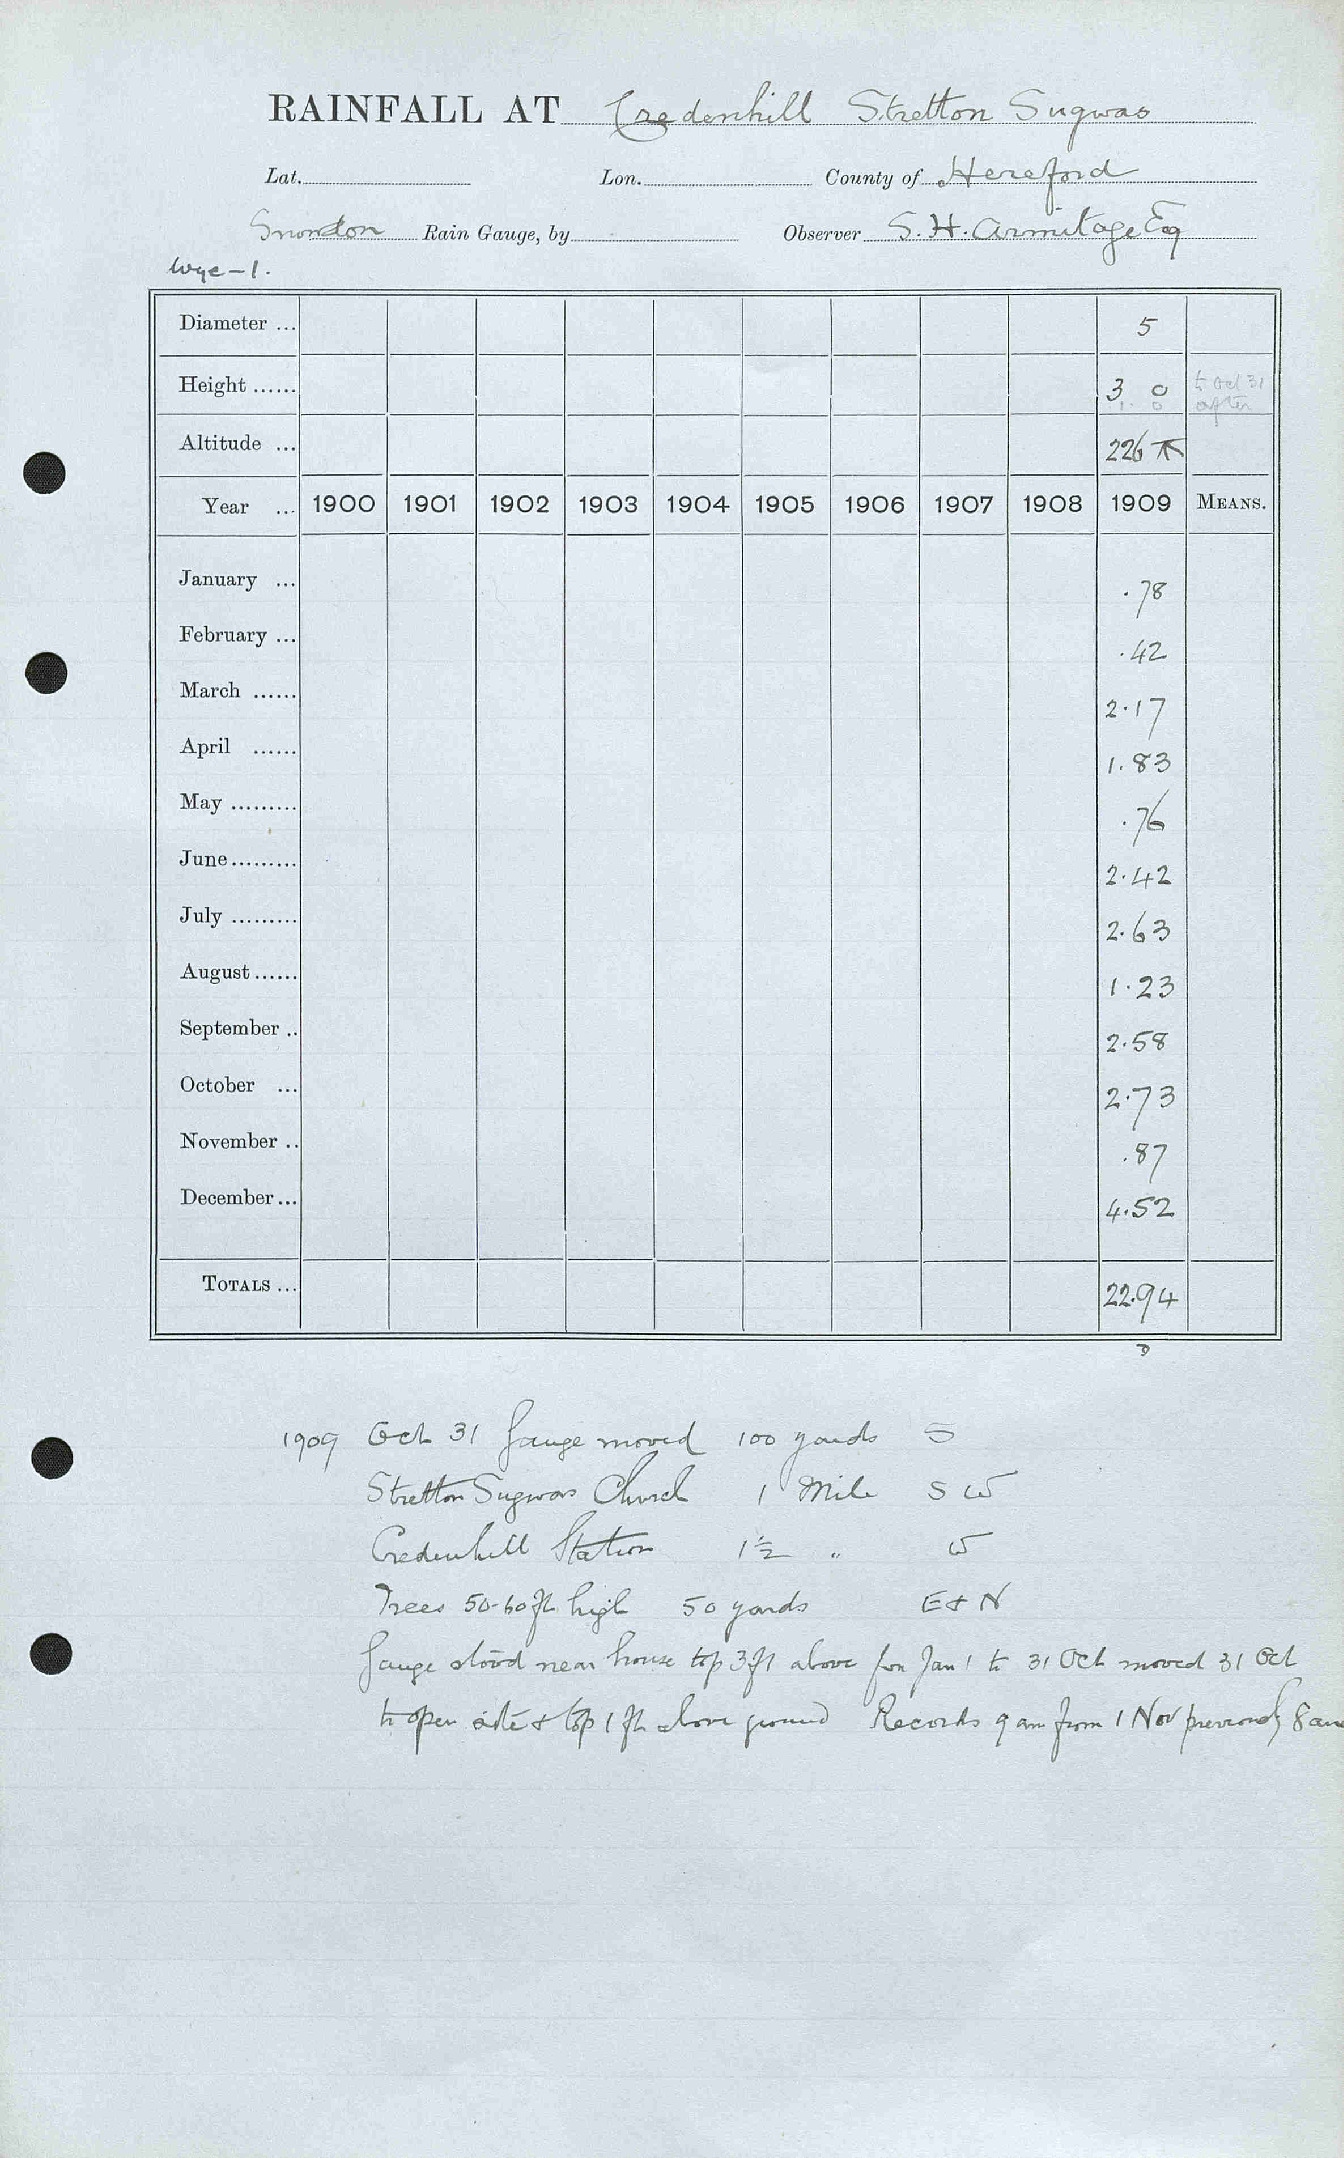 RAINFALL AT Credenhill Stretton Sugwas
Lat. Lon. County of Hereford
Snowdon Rain Gauge, by Observer S. H. Armitage Esq
Wye - 1.
Diameter ... 5
Height ...... 3 0 to Oct 31
1. 0 after
Altitude ... 226
Year ... 1900 1901 1902 1903 1904 1905 1906 1907 1908 1909 MEANS.
January ... .78
February ... .42
March ...... 2.17
April ...... 1.83
May ......... .76
June ......... 2.42
July ......... 2.63
August ...... 1.23
September .. 2.58
October ... 2.73
November .. .87
December ... 4.52
TOTALS ... 22.94
1909 Oct 31 Gauge moved 100 yards S
Stretton Sugwas Church 1 Mile S W
Credenhill Station 1½ " W
Trees 50-60 ft high 50 yards E & N
Gauge stood near house top 3 ft above from Jan 1 to 31 Oct moved 31 Oct
to open site & top 1 ft above ground Records 9 am from 1 Nov previously 8 am